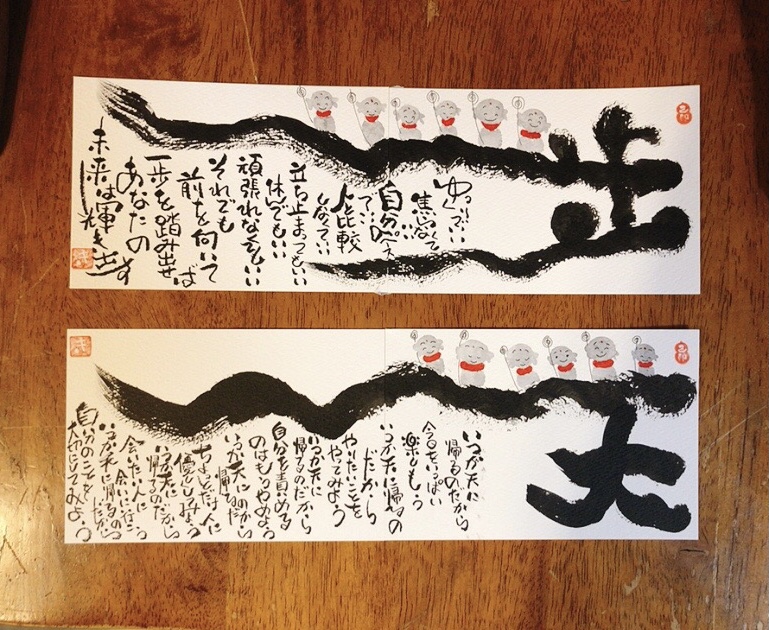 歩
ゆっくりでいい
焦らなくて
人と比較
しなくていい
立ち止まってもいい
休んでもいい
頑張れなくてもいい
それでも
前を向いて
一歩を踏み出せば
あなたの
未来は輝き出す
天
いつか天に
帰るのだから
今をいっぱい
楽しもう
いつか天に帰るの
だから
やりたいことを
やってみよう
いつか天に
帰るのだから
自分を責める
のはもうやめよう
いつか天に
帰るのだから
ちょっとだけ人に
優しくしてみよう
いつか天に
帰るのだから
会いたい人に
会いに行こう
いつか天に帰るの
だから
自分のことを
大切にしてみよう